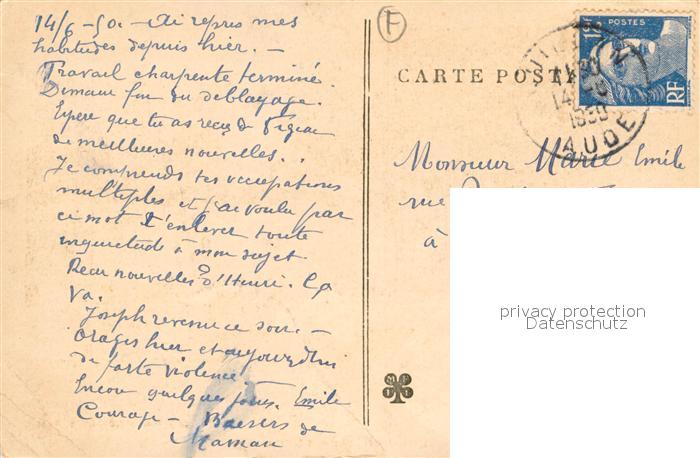 14/6-50. - Ai repris mes
habitudes depuis hier. -
Travail charpente terminé.
Demain fin du deblayage.
Espere que tu as reçu de
de meilleures nouvelles..
Je comprends tes occupations
multiples et j'ai voulu par
ce mot t'enlever toute
inquietude à mon sujet
Reçu nouvelles d'Henri. Ça
va.
Joseph revenu ce soir. -
Orages hier et aujourd'hui
de forte violence
Encore quelques jours. Emile
Courage - Baisers de
Maman
F
POSTES
18F
RF
14 -6
1950
AUDE
CARTE POSTALE
Monsieur Marie Emile
rue
à
privacy protection
Datenschutz